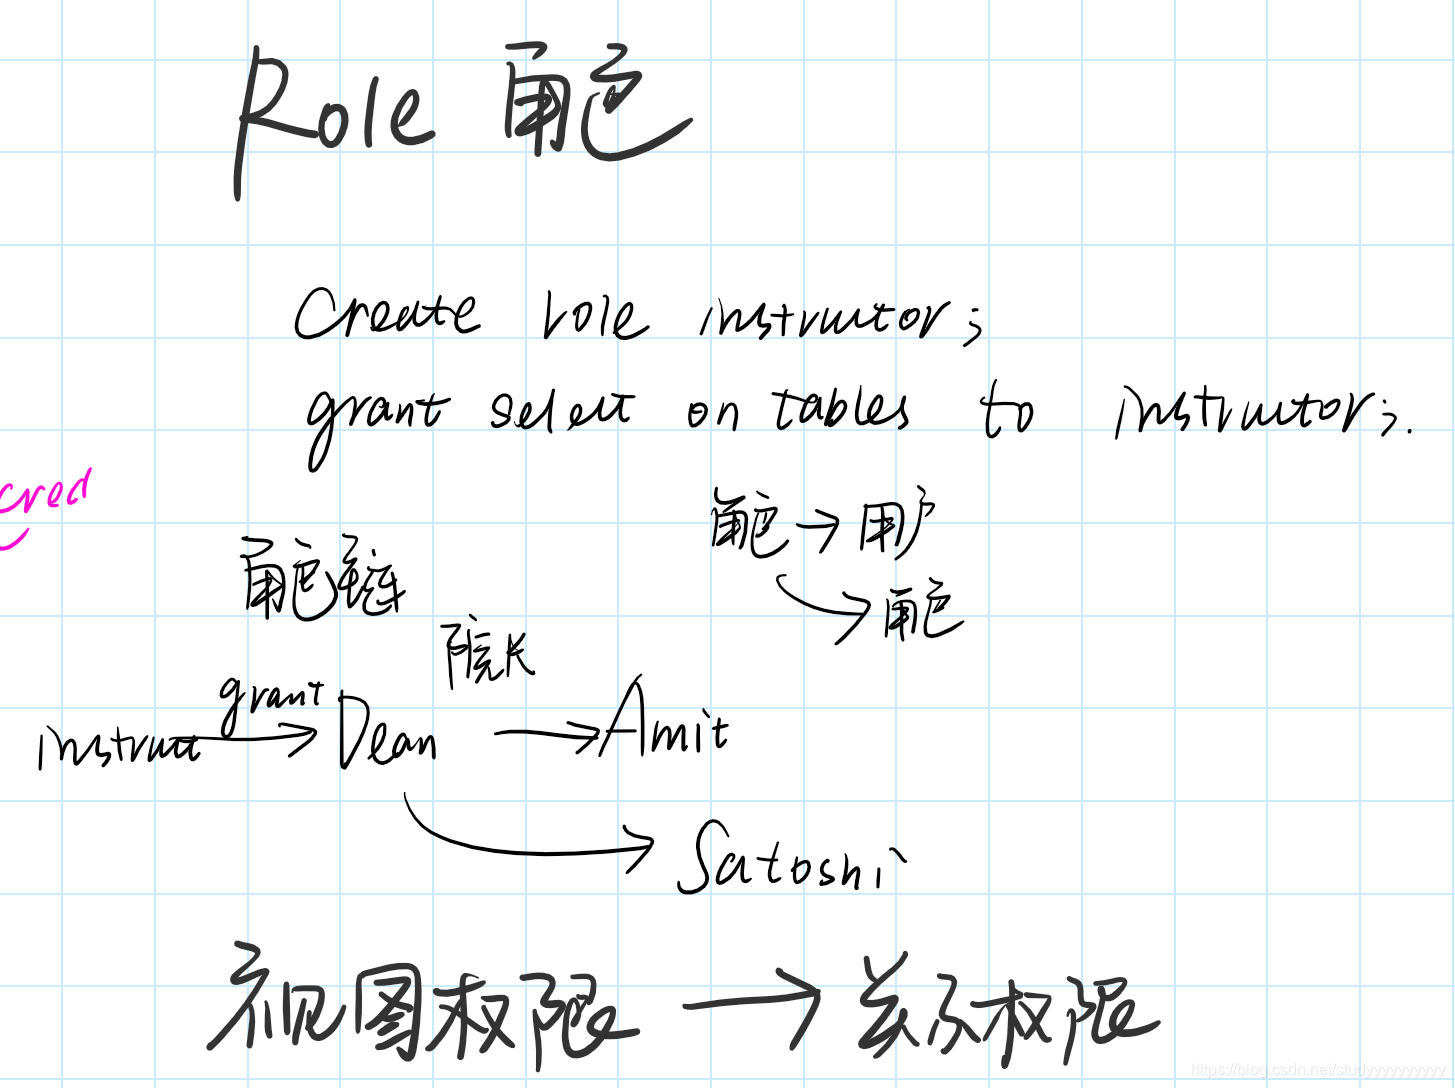 Role 角色
Create role instructor;
grant select on tables to instructor;.
cred
角色 → 用户
→ 角色
角色链
院长
grant
instruct → Dean → Amit
→ Satoshi
视图权限 → 关系权限
https://blog.csdn.net/studyyyyyyyyyy